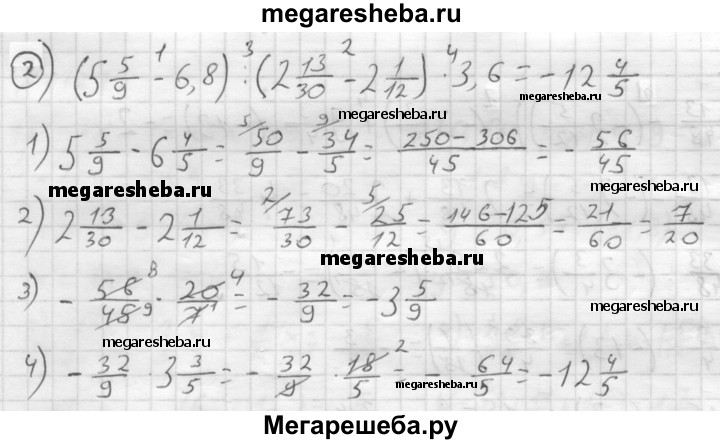 megaresheba.ru
2) (5 5/9 - 6,8) : (2 13/30 - 2 1/12) · 3,6 = -12 4/5
1 3 2 4
megaresheba.ru
megaresheba.ru
1) 5 5/9 - 6 4/5 = 50/9 - 34/5 = (250-306)/45 = - 56/45
5 9
megaresheba.ru
megaresheba.ru
2) 2 13/30 - 2 1/12 = 73/30 - 25/12 = (146-125)/60 = 21/60 = 7/20
2 5
megaresheba.ru
3) - 56/45 · 20/7 = - 32/9 = -3 5/9
8 9 4 1
megaresheba.ru
megaresheba.ru
4) - 32/9 · 3 3/5 = - 32/9 · 18/5 = - 64/5 = -12 4/5
2
megaresheba.ru
megaresheba.ru
Мегарешеба.ру